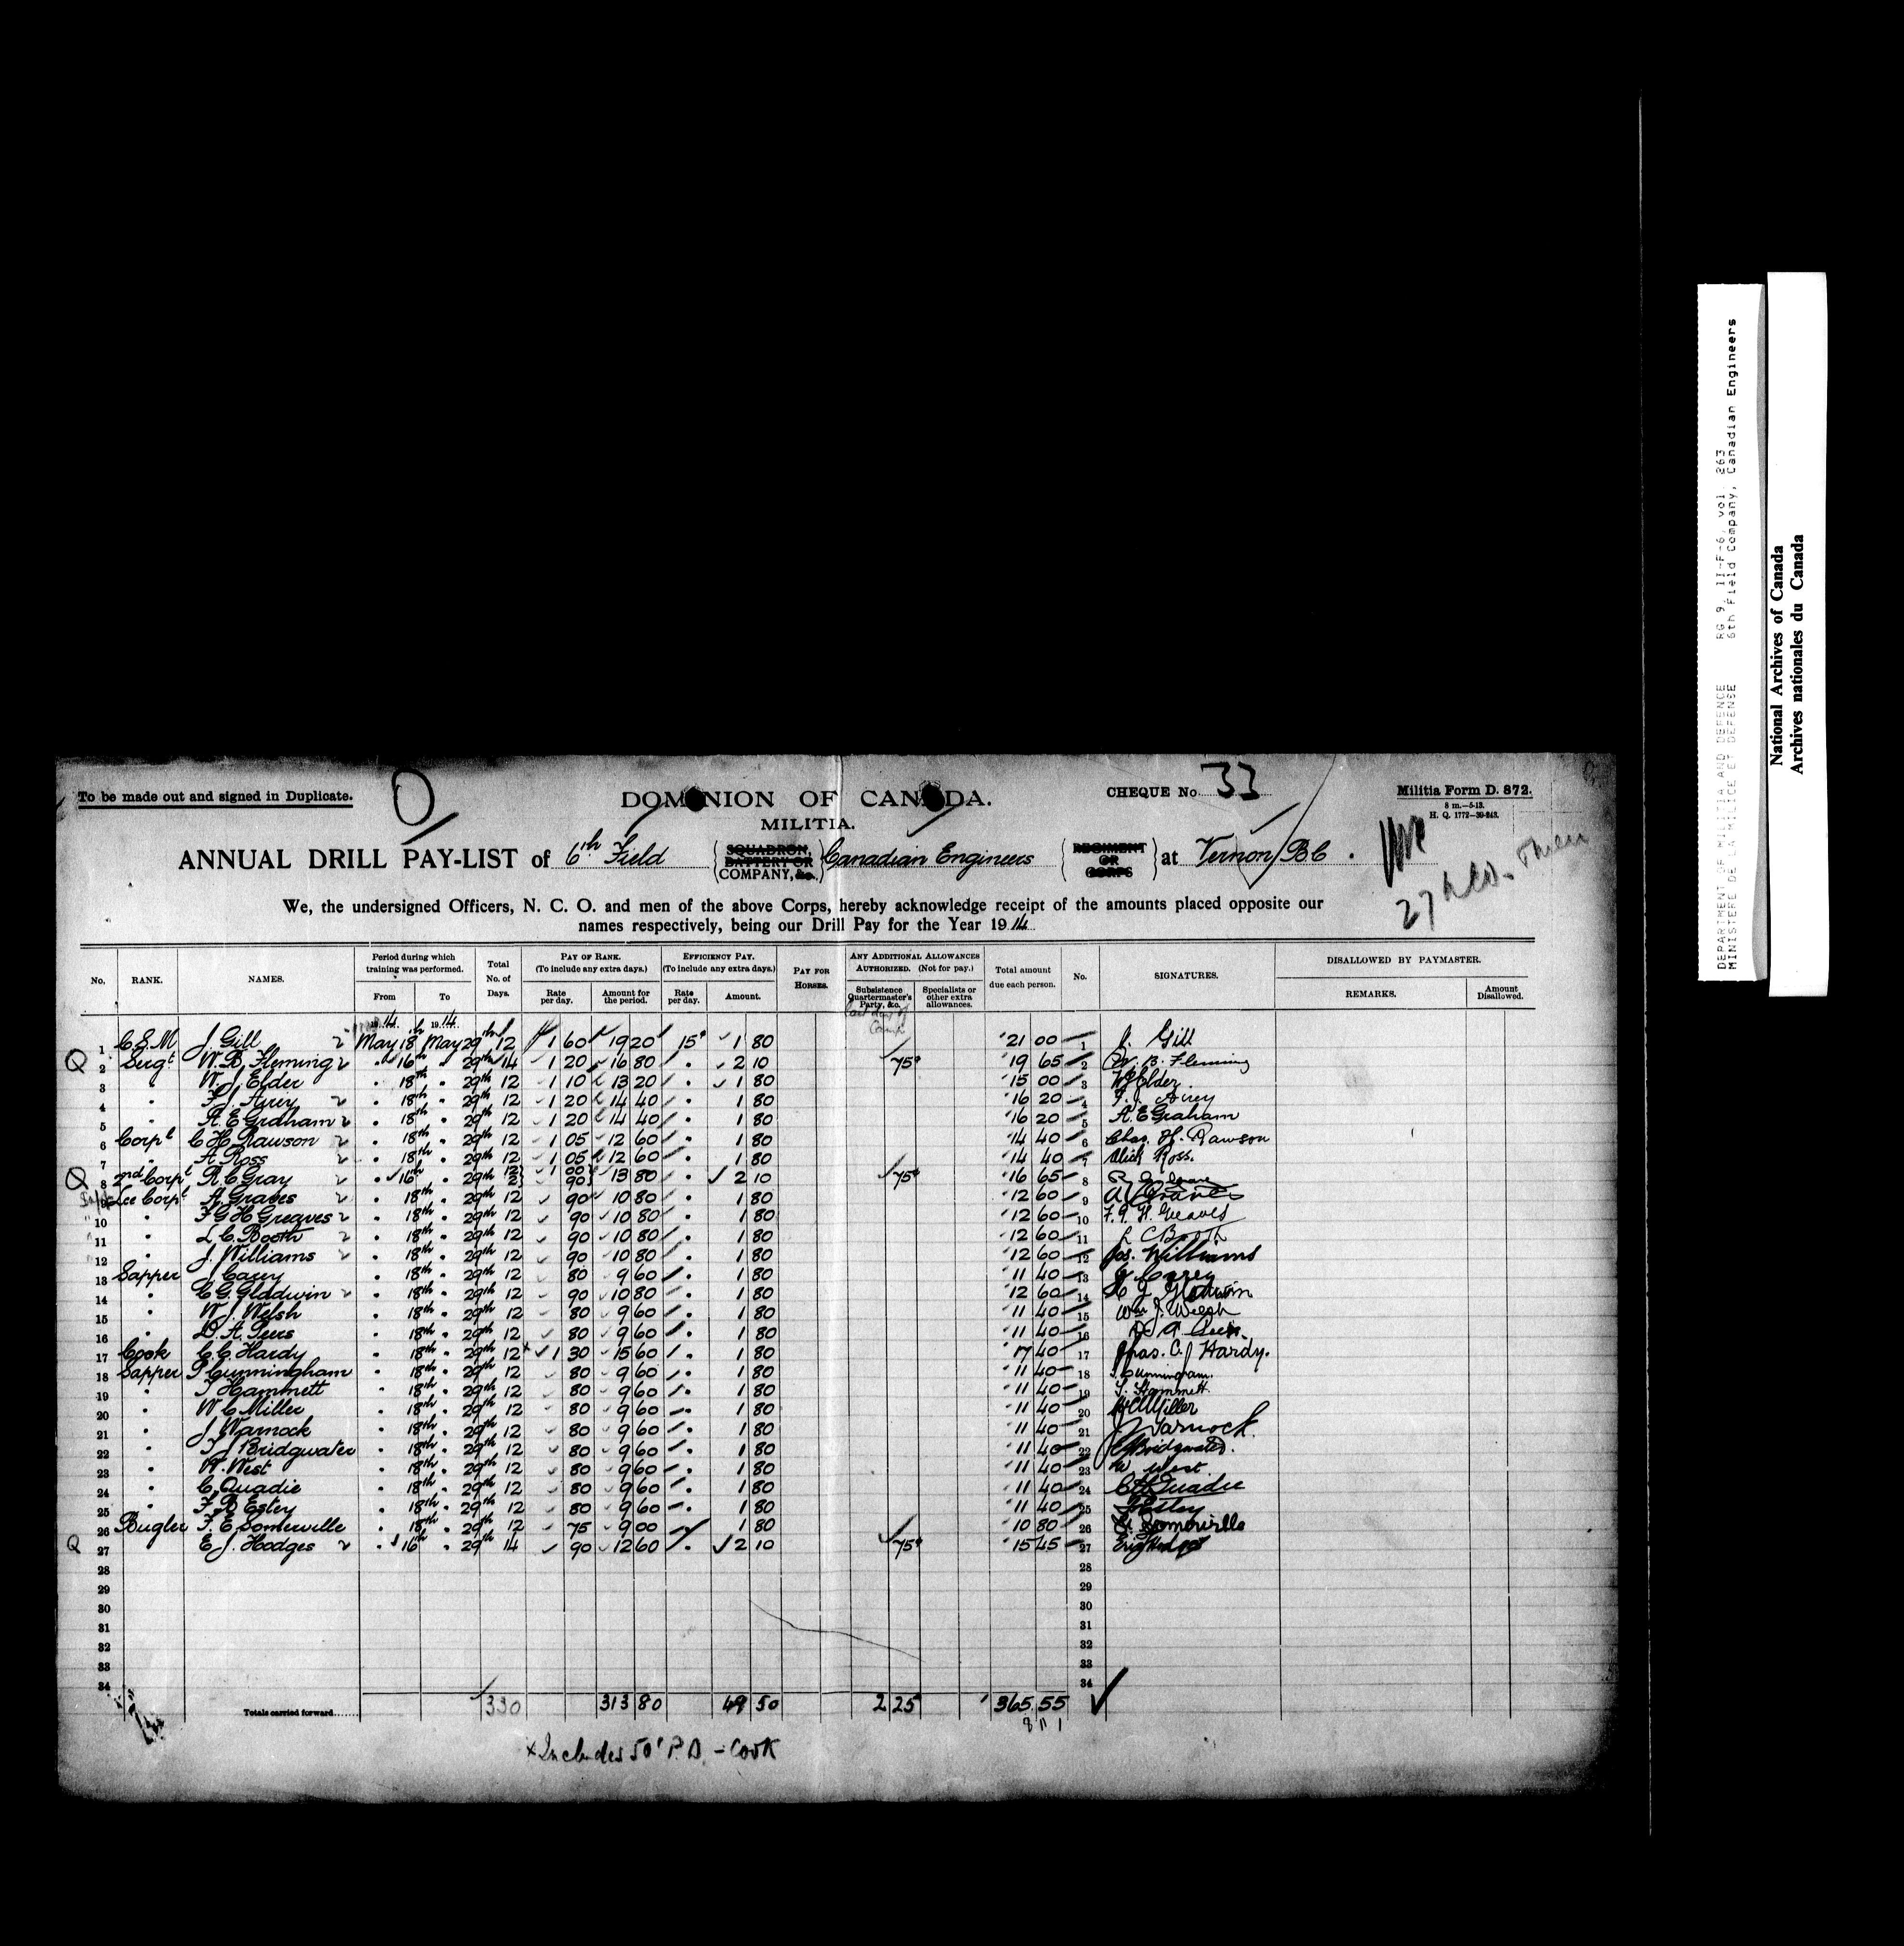 To be made out and signed in Duplicate.
DOMINION OF CANADA.
CHEQUE No 33
Militia Form D. 872.
8 m.—5-13.
H. Q. 1772—39-243.
MILITIA.
ANNUAL DRILL PAY-LIST of 6th Field SQUADRON, BATTERY OR COMPANY, &c. Canadian Engineers REGIMENT OR CORPS at Vernon BC.
We, the undersigned Officers, N. C. O. and men of the above Corps, hereby acknowledge receipt of the amounts placed opposite our
names respectively, being our Drill Pay for the Year 1914
No. RANK. NAMES. Period during which training was performed. From To Total No. of Days. PAY OF RANK. (To include any extra days.) Rate per day. Amount for the period. EFFICIENCY PAY. (To include any extra days.) Rate per day. Amount. PAY FOR HORSES. ANY ADDITIONAL ALLOWANCES AUTHORIZED. (Not for pay.) Subsistence Quartermaster's Party, &c. Specialists or other extra allowances. Total amount due each person. No. SIGNATURES. DISALLOWED BY PAYMASTER. REMARKS. Amount Disallowed.
1914 1914 Camp
1 C.S.M J. Gill 2 May 18th May 29th 12 1 60 19 20 15¢ 1 80 21 00 1 J. Gill
Q 2 Sergt W. B. Fleming 2 " 16th " 29th 14 1 20 16 80 " 2 10 75¢ 19 65 2 W. B. Fleming
3 " W. J. Elder " 18th " 29th 12 1 10 13 20 " 1 80 15 00 3 W J Elder
4 " F. J. Airey 2 " 18th " 29th 12 1 20 14 40 " 1 80 16 20 4 F. J. Airey
5 " A. E. Graham 2 " 18th " 29th 12 1 20 14 40 " 1 80 16 20 5 A. E Graham
6 Corpl C H Rawson 2 " 18th " 29th 12 1 05 12 60 " 1 80 14 40 6 Chas. H. Rawson
7 " A Ross 2 " 18th " 29th 12 1 05 12 60 " 1 80 14 40 7 Alick Ross.
Q 8 2nd Corpl R. C. Gray 2 " 16th " 29th 12 2 1 00 90 13 80 " 2 10 75¢ 16 65 8
9 Lce Corpl A Graves 2 " 18th " 29th 12 90 10 80 " 1 80 12 60 9 A Graves
10 " F G H Greaves 2 " 18th " 29th 12 90 10 80 " 1 80 12 60 10 F. G. H. Greaves
11 " L C. Booth 2 " 18th " 29th 12 90 10 80 " 1 80 12 60 11 L C Booth
12 " J. Williams 2 " 18th " 29th 12 90 10 80 " 1 80 12 60 12 Jos. Williams
13 Sapper J Carey " 18th " 29th 12 80 9 60 " 1 80 11 40 13 J. Carey
14 " C G. Gladwin 2 " 18th " 29th 12 90 10 80 " 1 80 12 60 14 C G Gladwin
15 " W. J. Welsh " 18th " 29th 12 80 9 60 " 1 80 11 40 15 Wm J. Welsh
16 " D. A. Peers " 18th " 29th 12 80 9 60 " 1 80 11 40 16 D A Peers
17 Cook C. C. Hardy " 18th " 29th 12 × 1 30 15 60 " 1 80 17 40 17 Chas. C. Hardy.
18 Sapper P Cunningham " 18th " 29th 12 80 9 60 " 1 80 11 40 18 P. Cunningham.
19 " T Hammett " 18th " 29th 12 80 9 60 " 1 80 11 40 19 T. Hammett.
20 " W. C Miller " 18th " 29th 12 80 9 60 " 1 80 11 40 20 W C Miller
21 " J Warnock " 18th " 29th 12 80 9 60 " 1 80 11 40 21 J. Warnock.
22 " T J Bridgwater " 18th " 29th 12 80 9 60 " 1 80 11 40 22 Bridgwater.
23 " W. West " 18th " 29th 12 80 9 60 " 1 80 11 40 23 W West
24 " C. Quadie " 18th " 29th 12 80 9 60 " 1 80 11 40 24 C Quadie
25 " F. B Estey " 18th " 29th 12 80 9 60 " 1 80 11 40 25 Estey
26 Bugler F. E Somerville " 18th " 29th 12 75 9 00 " 1 80 10 80 26 Somerville
Q 27 E. J. Hodges 2 " 16th " 29th 14 90 12 60 " 2 10 75¢ 15 45 27 Eric Hodges
28 28
29 29
30 30
31 31
32 32
33 33
34 34
Totals carried forward...... 330 313 80 49 50 2 25 365 55
× Includes 50¢ P. D. – Cook
DEPARTMENT OF MILITIA AND DEFENCE RG 9, II-F-6, vol. 263
MINISTERE DE LA MILICE ET DEFENSE 6th Field Company, Canadian Engineers
National Archives of Canada
Archives nationales du Canada